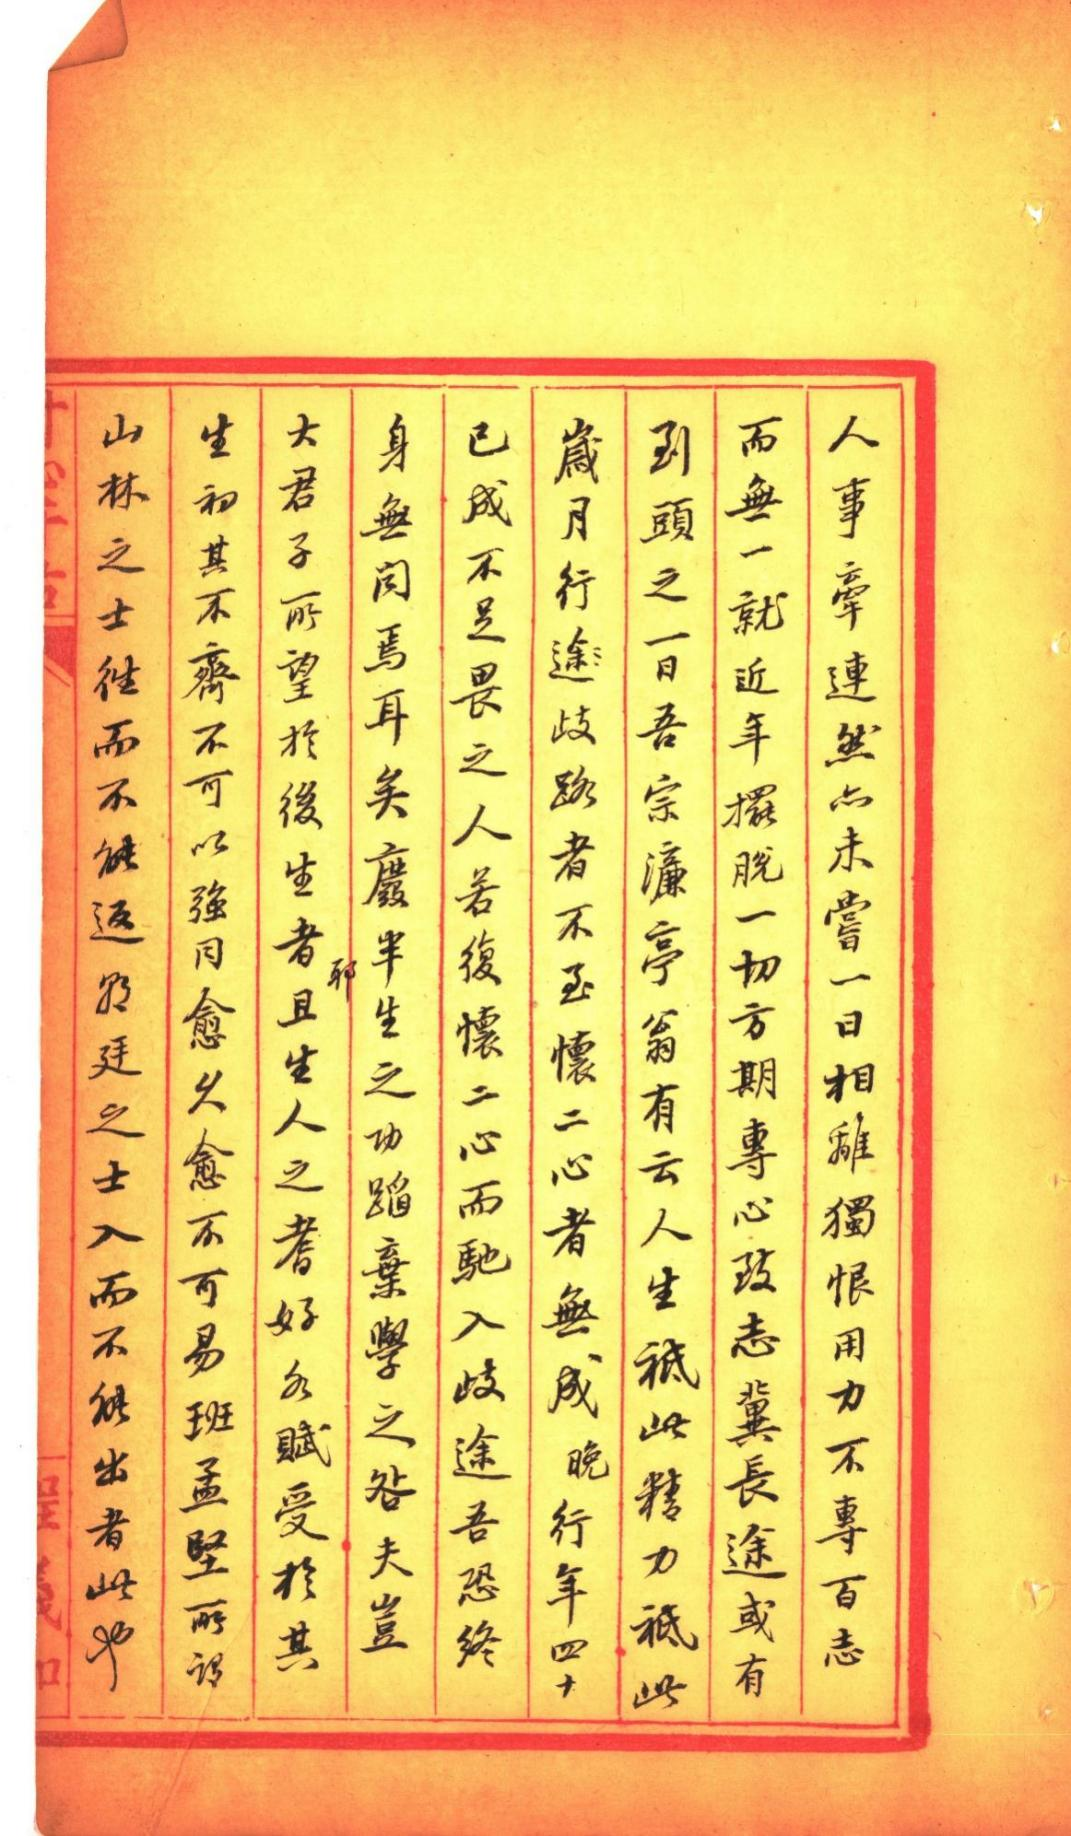 人事牽連然亦未嘗一日相離獨恨用力不專百志
而無一就近年擺脫一切方期專心致志冀長途或有
到頭之一日吾宗濂亭翁有云人生祗此精力祗此
歲月行途歧路者不至懷二心者無成晚行年四十
已成不足畏之人若復懷二心而馳入歧途吾恐終
身無聞焉耳矣廢半生之功蹈棄學之咎夫豈
大君子所望於後生者耶且生人之耆好各賦受於其
生初其不齊不可以強同愈久愈不可易班孟堅所謂
山林之士往而不能返朝廷之士入而不能出者此也